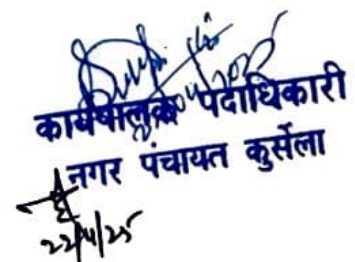 कार्यपालक पदाधिकारी
नगर पंचायत कुर्सेला
22/4/25